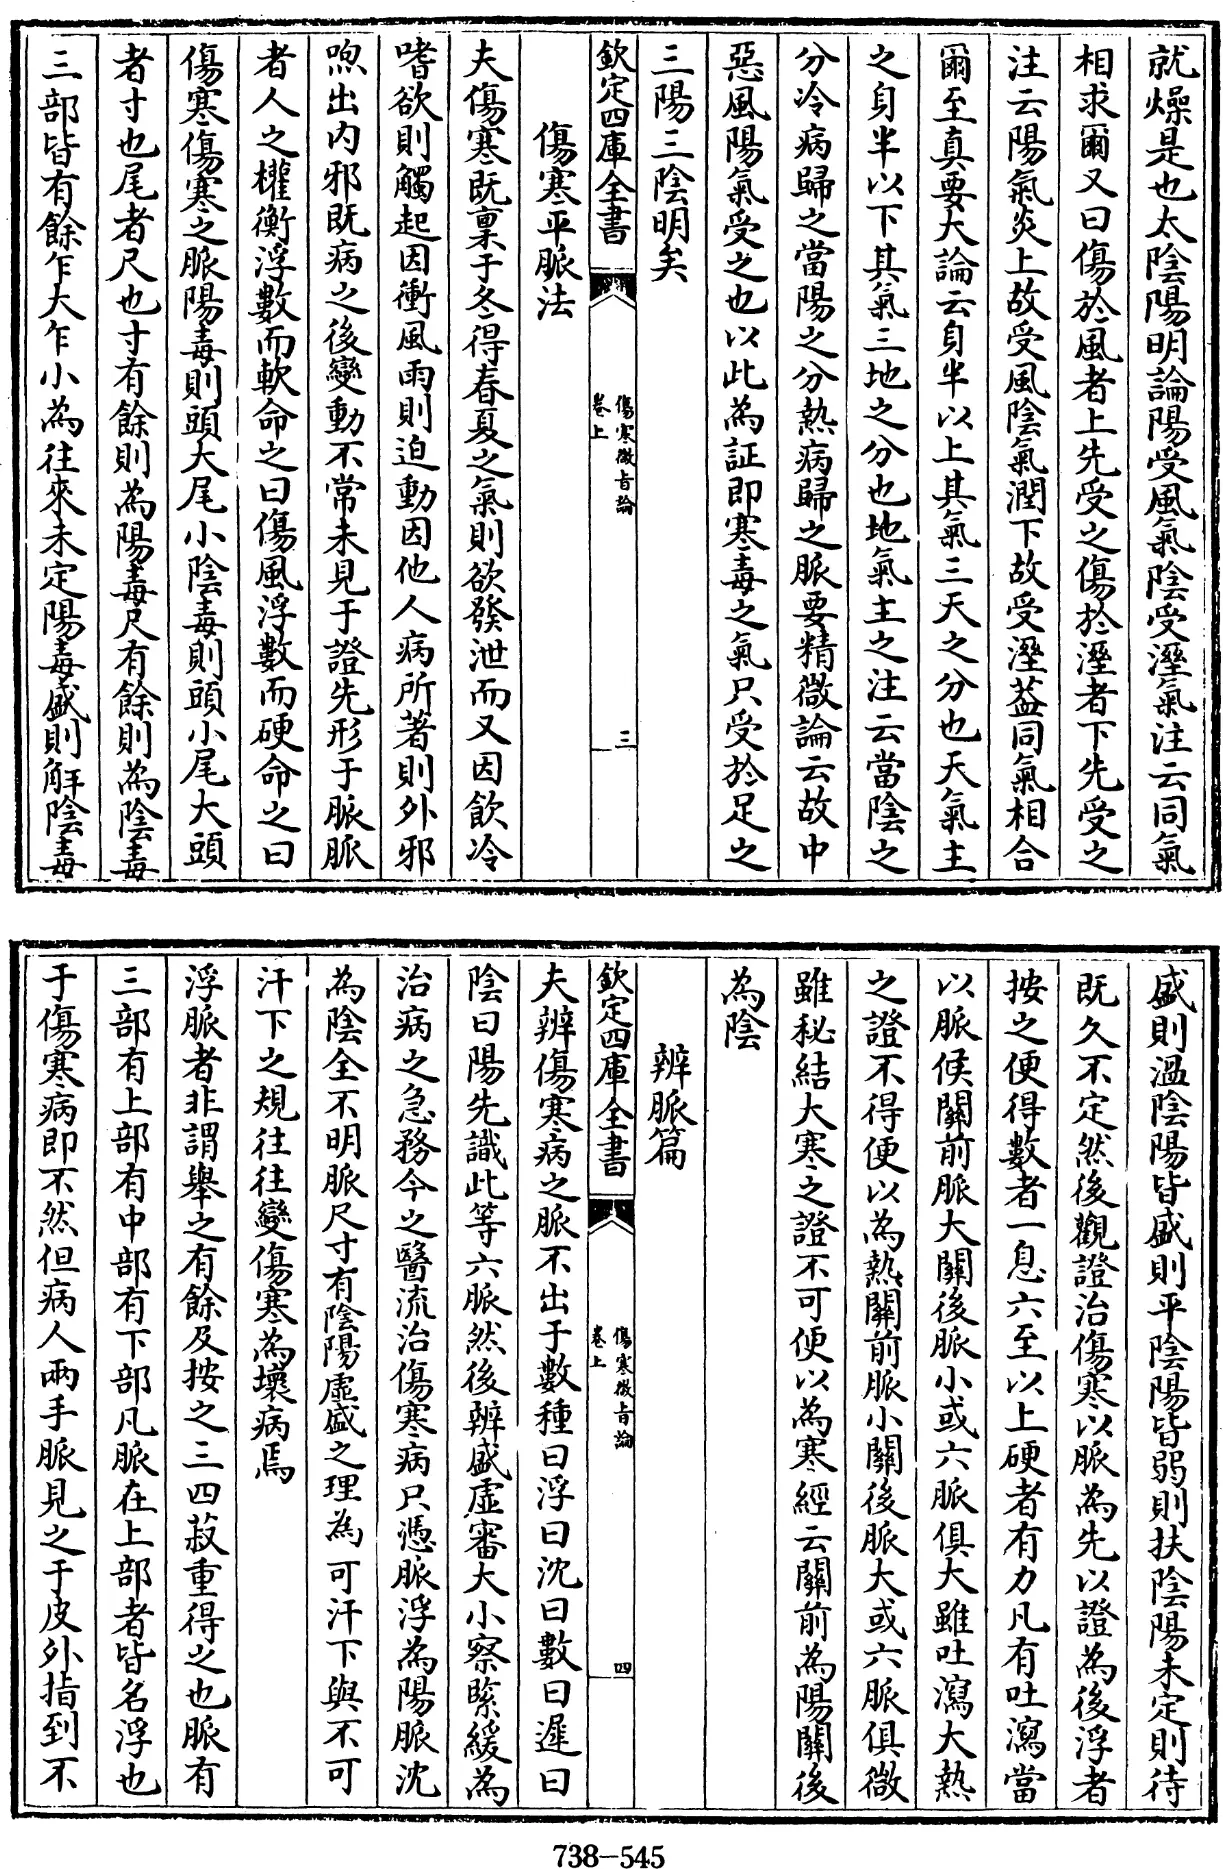 就燥是也太陰陽明論陽受風氣陰受溼氣注云同氣
相求爾又曰傷於風者上先受之傷於溼者下先受之
注云陽氣炎上故受風陰氣潤下故受溼葢同氣相合
爾至真要大論云身半以上其氣三天之分也天氣主
之身半以下其氣三地之分也地氣主之注云當陰之
分冷病歸之當陽之分熱病歸之脈要精微論云故中
惡風陽氣受之也以此為証即寒毒之氣只受於足之
三陽三陰明矣
欽定四庫全書
傷寒微旨論
卷上
三
傷寒平脈法
夫傷寒既稟于冬得春夏之氣則欲發泄而又因飲冷
嗜欲則觸起因衝風雨則迫動因他人病所著則外邪
喣出內邪既病之後變動不常未見于證先形于脈脈
者人之權衡浮數而軟命之曰傷風浮數而硬命之曰
傷寒傷寒之脈陽毒則頭大尾小陰毒則頭小尾大頭
者寸也尾者尺也寸有餘則為陽毒尺有餘則為陰毒
三部皆有餘乍大乍小為往來未定陽毒盛則解陰毒
盛則溫陰陽皆盛則平陰陽皆弱則扶陰陽未定則待
既久不定然後觀證治傷寒以脈為先以證為後浮者
按之便得數者一息六至以上硬者有力凡有吐瀉當
以脈候關前脈大關後脈小或六脈俱大雖吐瀉大熱
之證不得便以為熱關前脈小關後脈大或六脈俱微
雖秘結大寒之證不可便以為寒經云關前為陽關後
為陰
辨脈篇
欽定四庫全書
傷寒微旨論
卷上
四
夫辨傷寒病之脈不出于數種曰浮曰沈曰數曰遲曰
陰曰陽先識此等六脈然後辨盛虛審大小察緊緩為
治病之急務今之醫流治傷寒病只憑脈浮為陽脈沈
為陰全不明脈尺寸有陰陽虛盛之理為可汗下與不可
汗下之規往往變傷寒為壞病焉
浮脈者非謂舉之有餘及按之三四菽重得之也脈有
三部有上部有中部有下部凡脈在上部者皆名浮也
于傷寒病即不然但病人兩手脈見之于皮外指到不
738-545